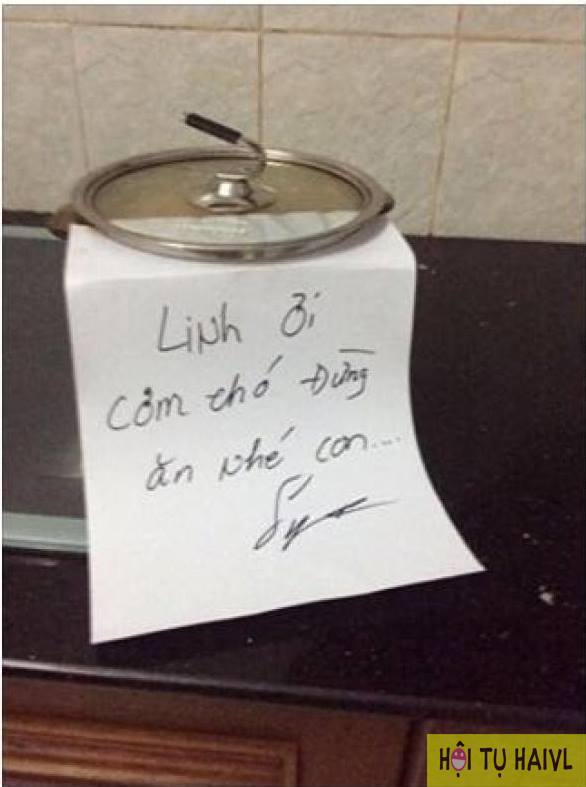 Linh ơi
Cơm chó Đừng
ăn nhé con...
HỘI TỤ HAIVL